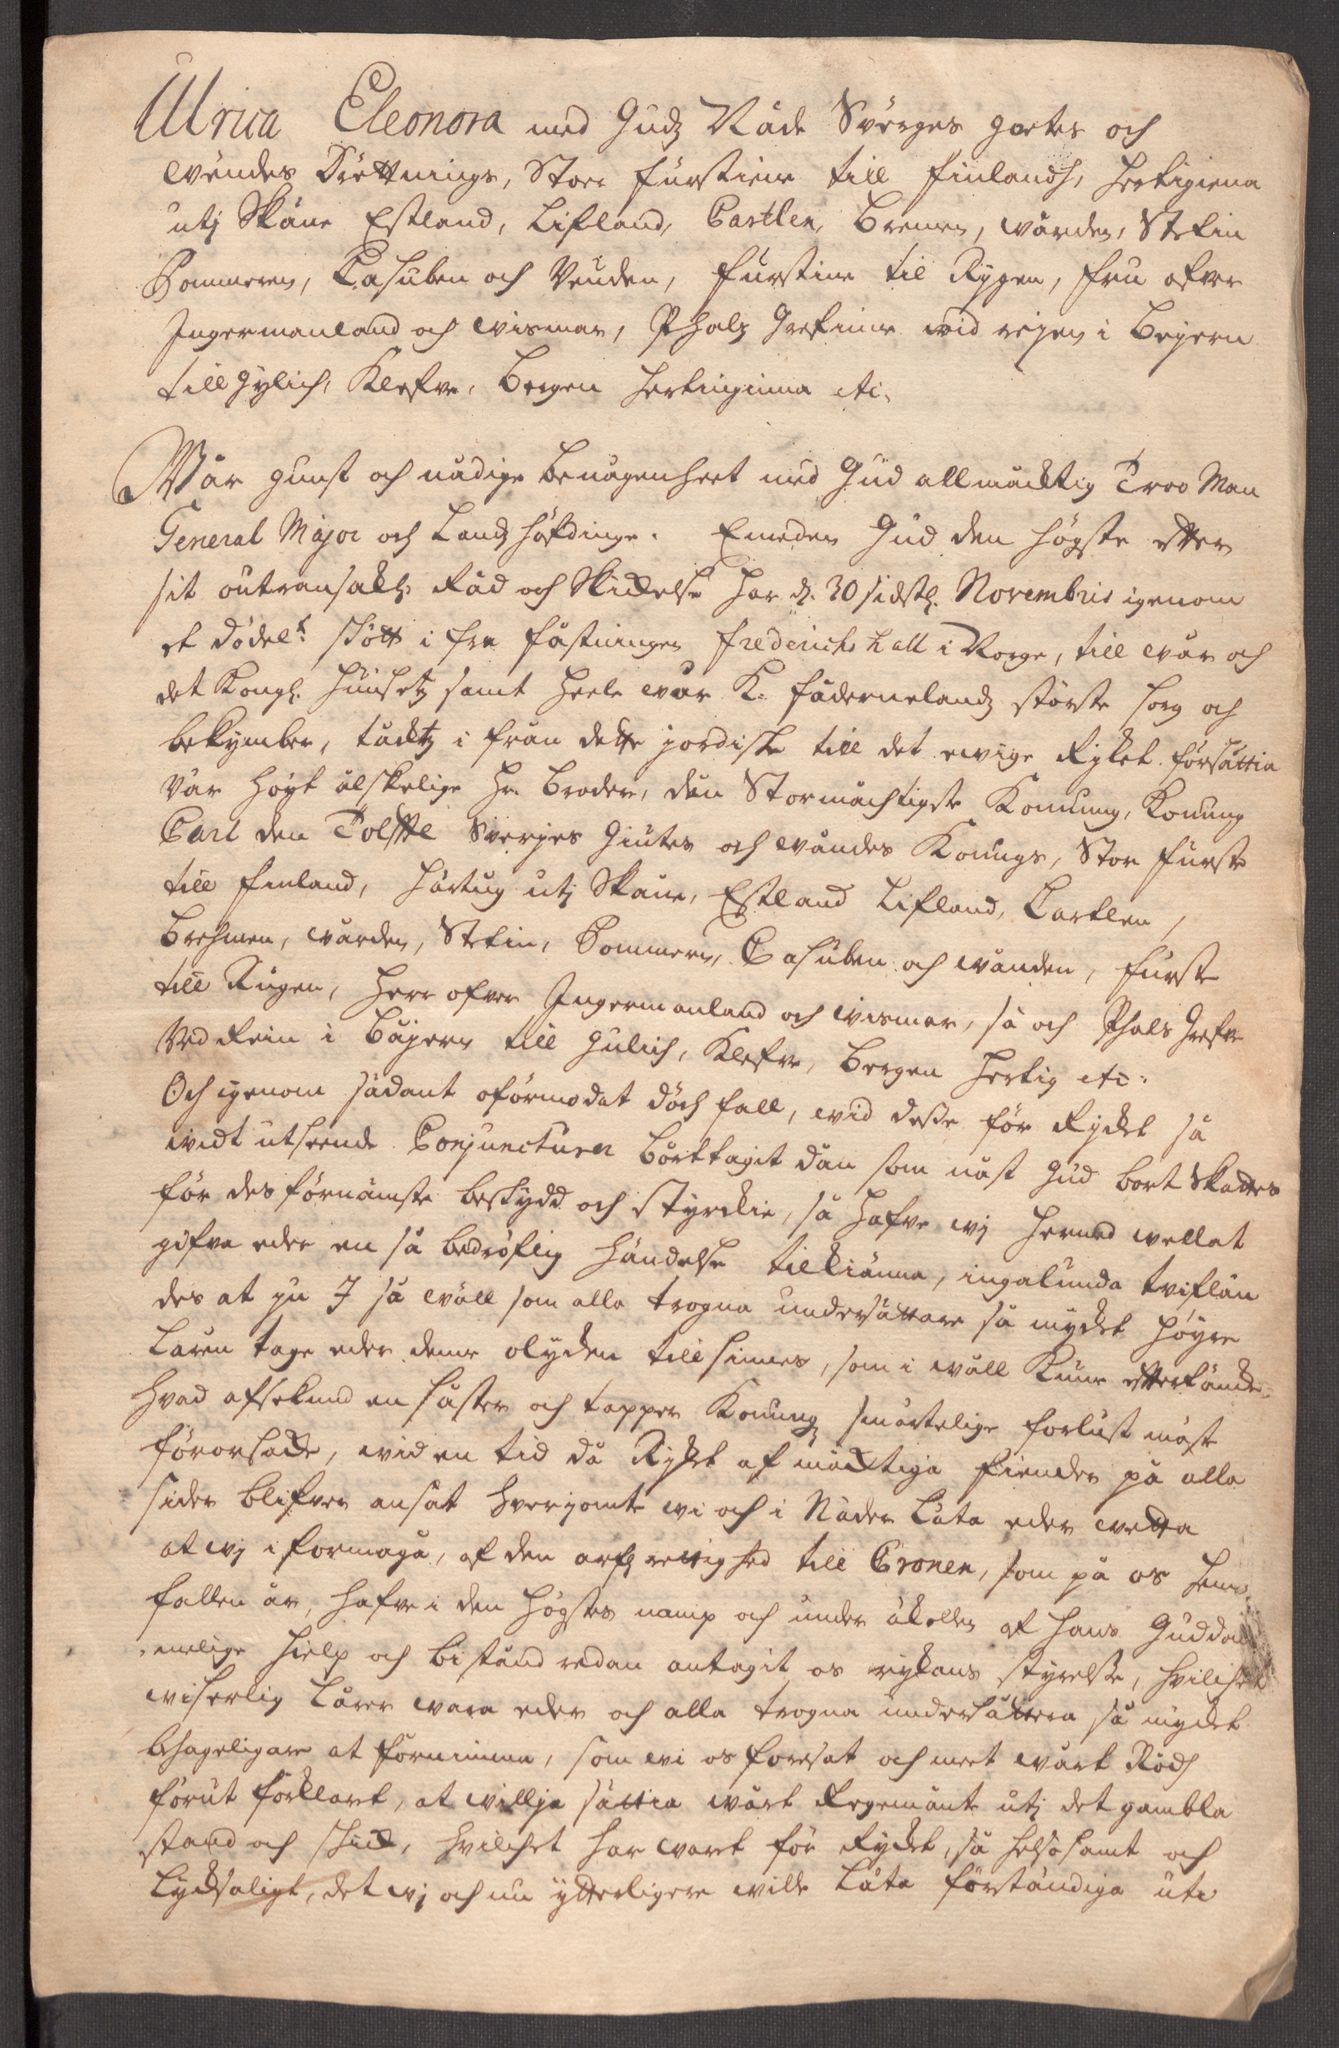 Ulrica Eleonora med Gudz Nåde Sverges Goetes och
Wendes Drottnings, Stoer Furstinne till Finlandh, Hertiginna
utj Skåne Estland, Lifland, Carelen, Bremen, Wärden, Stetin
Pommeren, Casuben och Venden, Furstinne til Rygen, Fru ofver
Ingermanland och Wismar, Phaltz Grefinne wid reijen i Beijern
till Gylich, Klefve, Bergen Hertinginna etc.
Wår gunst och nådige benägenheet med Gud allmächtig Troo Man
General Major och Landz Höfdinge. Emeden Gud den högste etter
sit outransakl. Råd och Skickelse har d. 30 sidstl. Novembris igenom
et dödel.t skått i fra fästningen Friderichshall i Norge, till wår och
det Kongl. Huusetz samt heele wår K. fäderneslandz störste sorg och
bekymber, täcktz i från dette jordiske till det ewige Ryket försättia
Vår höyt älskelige Hr. Broder, den Stormächtigste Konung, Konung
Carl den Tolffte Sverjes Giötes och Wändes Konungs, Stor Furste
till Finland, Härtug utj Skåne, Estland Lifland, Carelen,
Brehmen, Wärden, Stetin, Pommern, Casuben och Wänden, Furste
till Rügen, Herr ofver Ingermanland och Wismar, så och Phals Grefve
Ved Rein i Bäijern till Gulich, Klefve, Bergen Hertig etc.
Och igenom sådant oförmodat döds fall, wid desse för Rycket så
widt utseende Conjuncturer borttagit dän som näst Gud bort skattes
för des förnämste beskydd och styrckie, så hafve wj hermed wellat
gifva eder en så bedröflig händelse tillkiänna, ingalunda tviflan
des at ju J så wäll som alla trogna undersåttare så mycket höyre
Lären tage eder denne olycken till sinnes, som i wäll kunne efterkände
hvad afseknad en sådan och tapper Konungz smärtelige forlust måste
förorsacke, wid en tid då Rycket af mächtige fiender på alla
sider blifver ansat hverjemte wi och i Nåder Låta eder wetta
at wj i formågå, af den arfz rettighed till Cronen, som på os hem
fallen är, hafve i den högstes namp och under åkallen af hans Guddom
melige hielp och bistånd redan antagit os rykens styrelse, hvilchet
wiserlig lärer wara eder och alla trogna undersåttera så mycket
behageligare at förnimma, som wi os foresat och meet wårt Rådh
förut forklart, at willja sättia wårt Regemänte utj det gambla
stand och skick, hvilchet har warit för Rycket, så helsosamt och
lycksaligt, det wj och nu ytterligere wille Låta förständiga uti